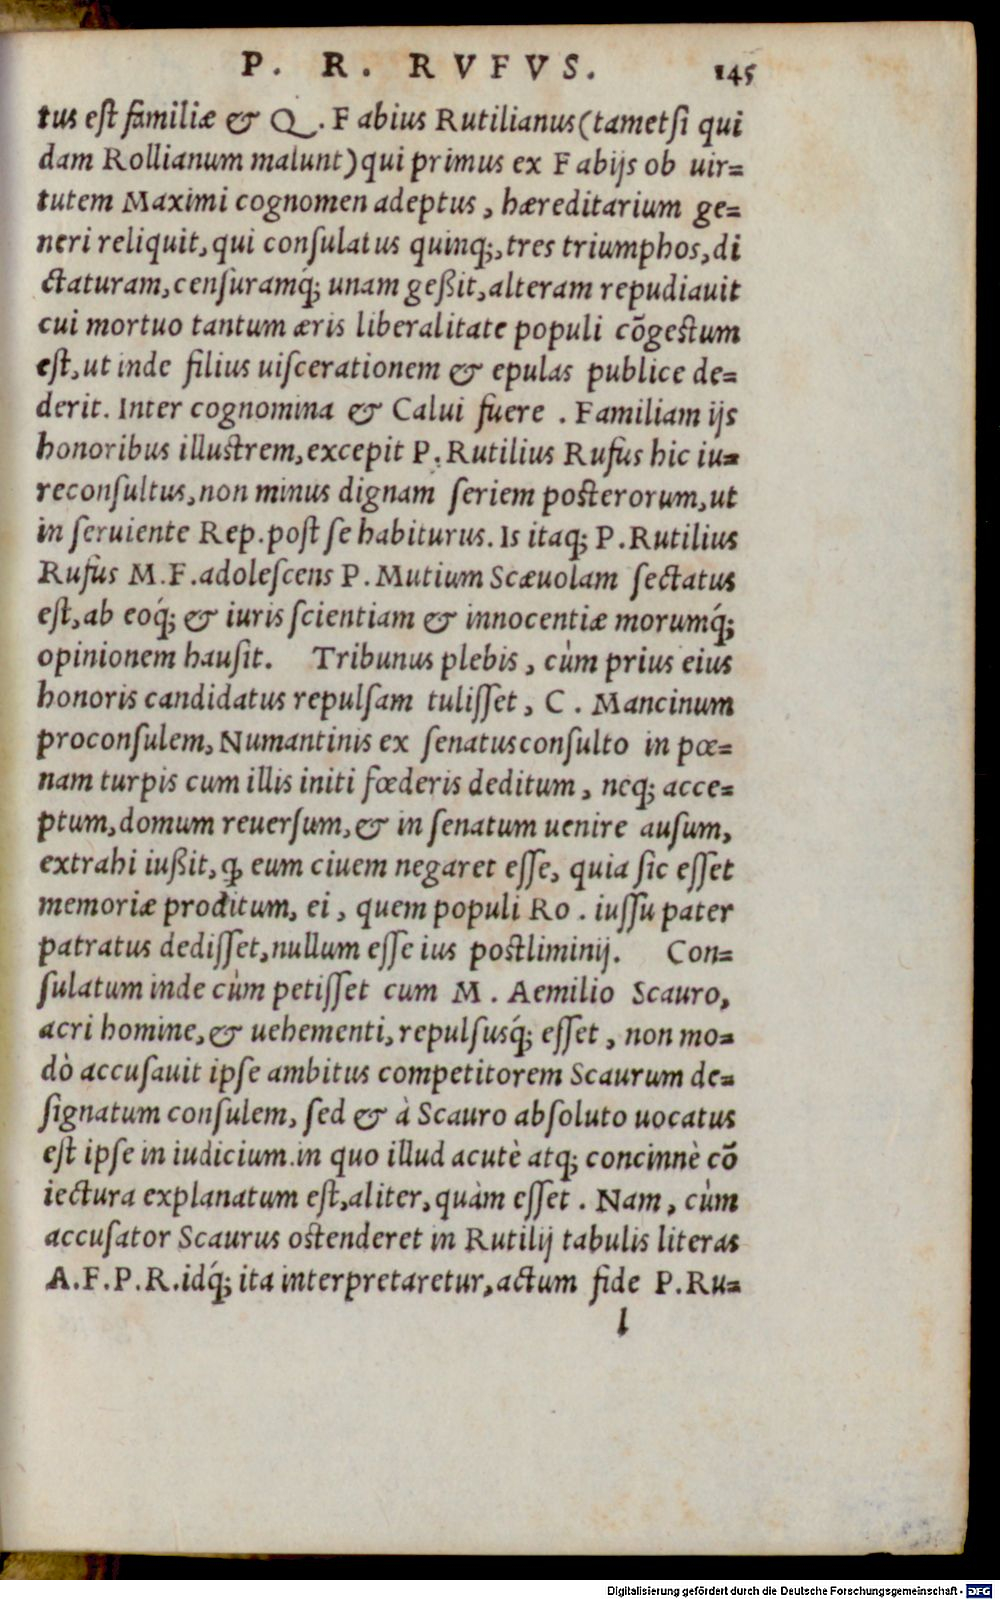 P. R. RVFVS. 145
tus est familiæ & Q. Fabius Rutilianus (tametsi qui
dam Rollianum malunt) qui primus ex Fabijs ob uir=
tutem Maximi cognomen adeptus, hæreditarium ge=
neri reliquit, qui consulatus quinq;, tres triumphos, di
ctaturam, censuramq́; unam geßit, alteram repudiauit
cui mortuo tantum æris liberalitate populi cōgestum
est, ut inde filius uiscerationem & epulas publice de=
derit. Inter cognomina & Calui fuere. Familiam ijs
honoribus illustrem, excepit P. Rutilius Rufus hic iu=
reconsultus, non minus dignam seriem posterorum, ut
in seruiente Rep. post se habiturus. Is itaq; P. Rutilius
Rufus M. F. adolescens P. Mutium Scæuolam sectatus
est, ab eoq́; & iuris scientiam & innocentiæ morumq́;
opinionem hausit. Tribunus plebis, cùm prius eius
honoris candidatus repulsam tulisset, C. Mancinum
proconsulem, Numantinis ex senatusconsulto in pœ=
nam turpis cum illis initi fœderis deditum, neq; acce=
ptum, domum reuersum, & in senatum uenire ausum,
extrahi iußit, ꝙ eum ciuem negaret esse, quia sic esset
memoriæ proditum, ei, quem populi Ro. iussu pater
patratus dedisset, nullum esse ius postliminij. Con=
sulatum inde cùm petisset cum M. Aemilio Scauro,
acri homine, & uehementi, repulsusq́; esset, non mo=
dò accusauit ipse ambitus competitorem Scaurum de=
signatum consulem, sed & à Scauro absoluto uocatus
est ipse in iudicium. in quo illud acutè atq; concinnè cō
iectura explanatum est, aliter, quàm esset. Nam, cùm
accusator Scaurus ostenderet in Rutilij tabulis literas
A. F. P. R. idq́; ita interpretaretur, actum fide P. Ru=
l
Digitalisierung gefördert durch die Deutsche Forschungsgemeinschaft - DFG